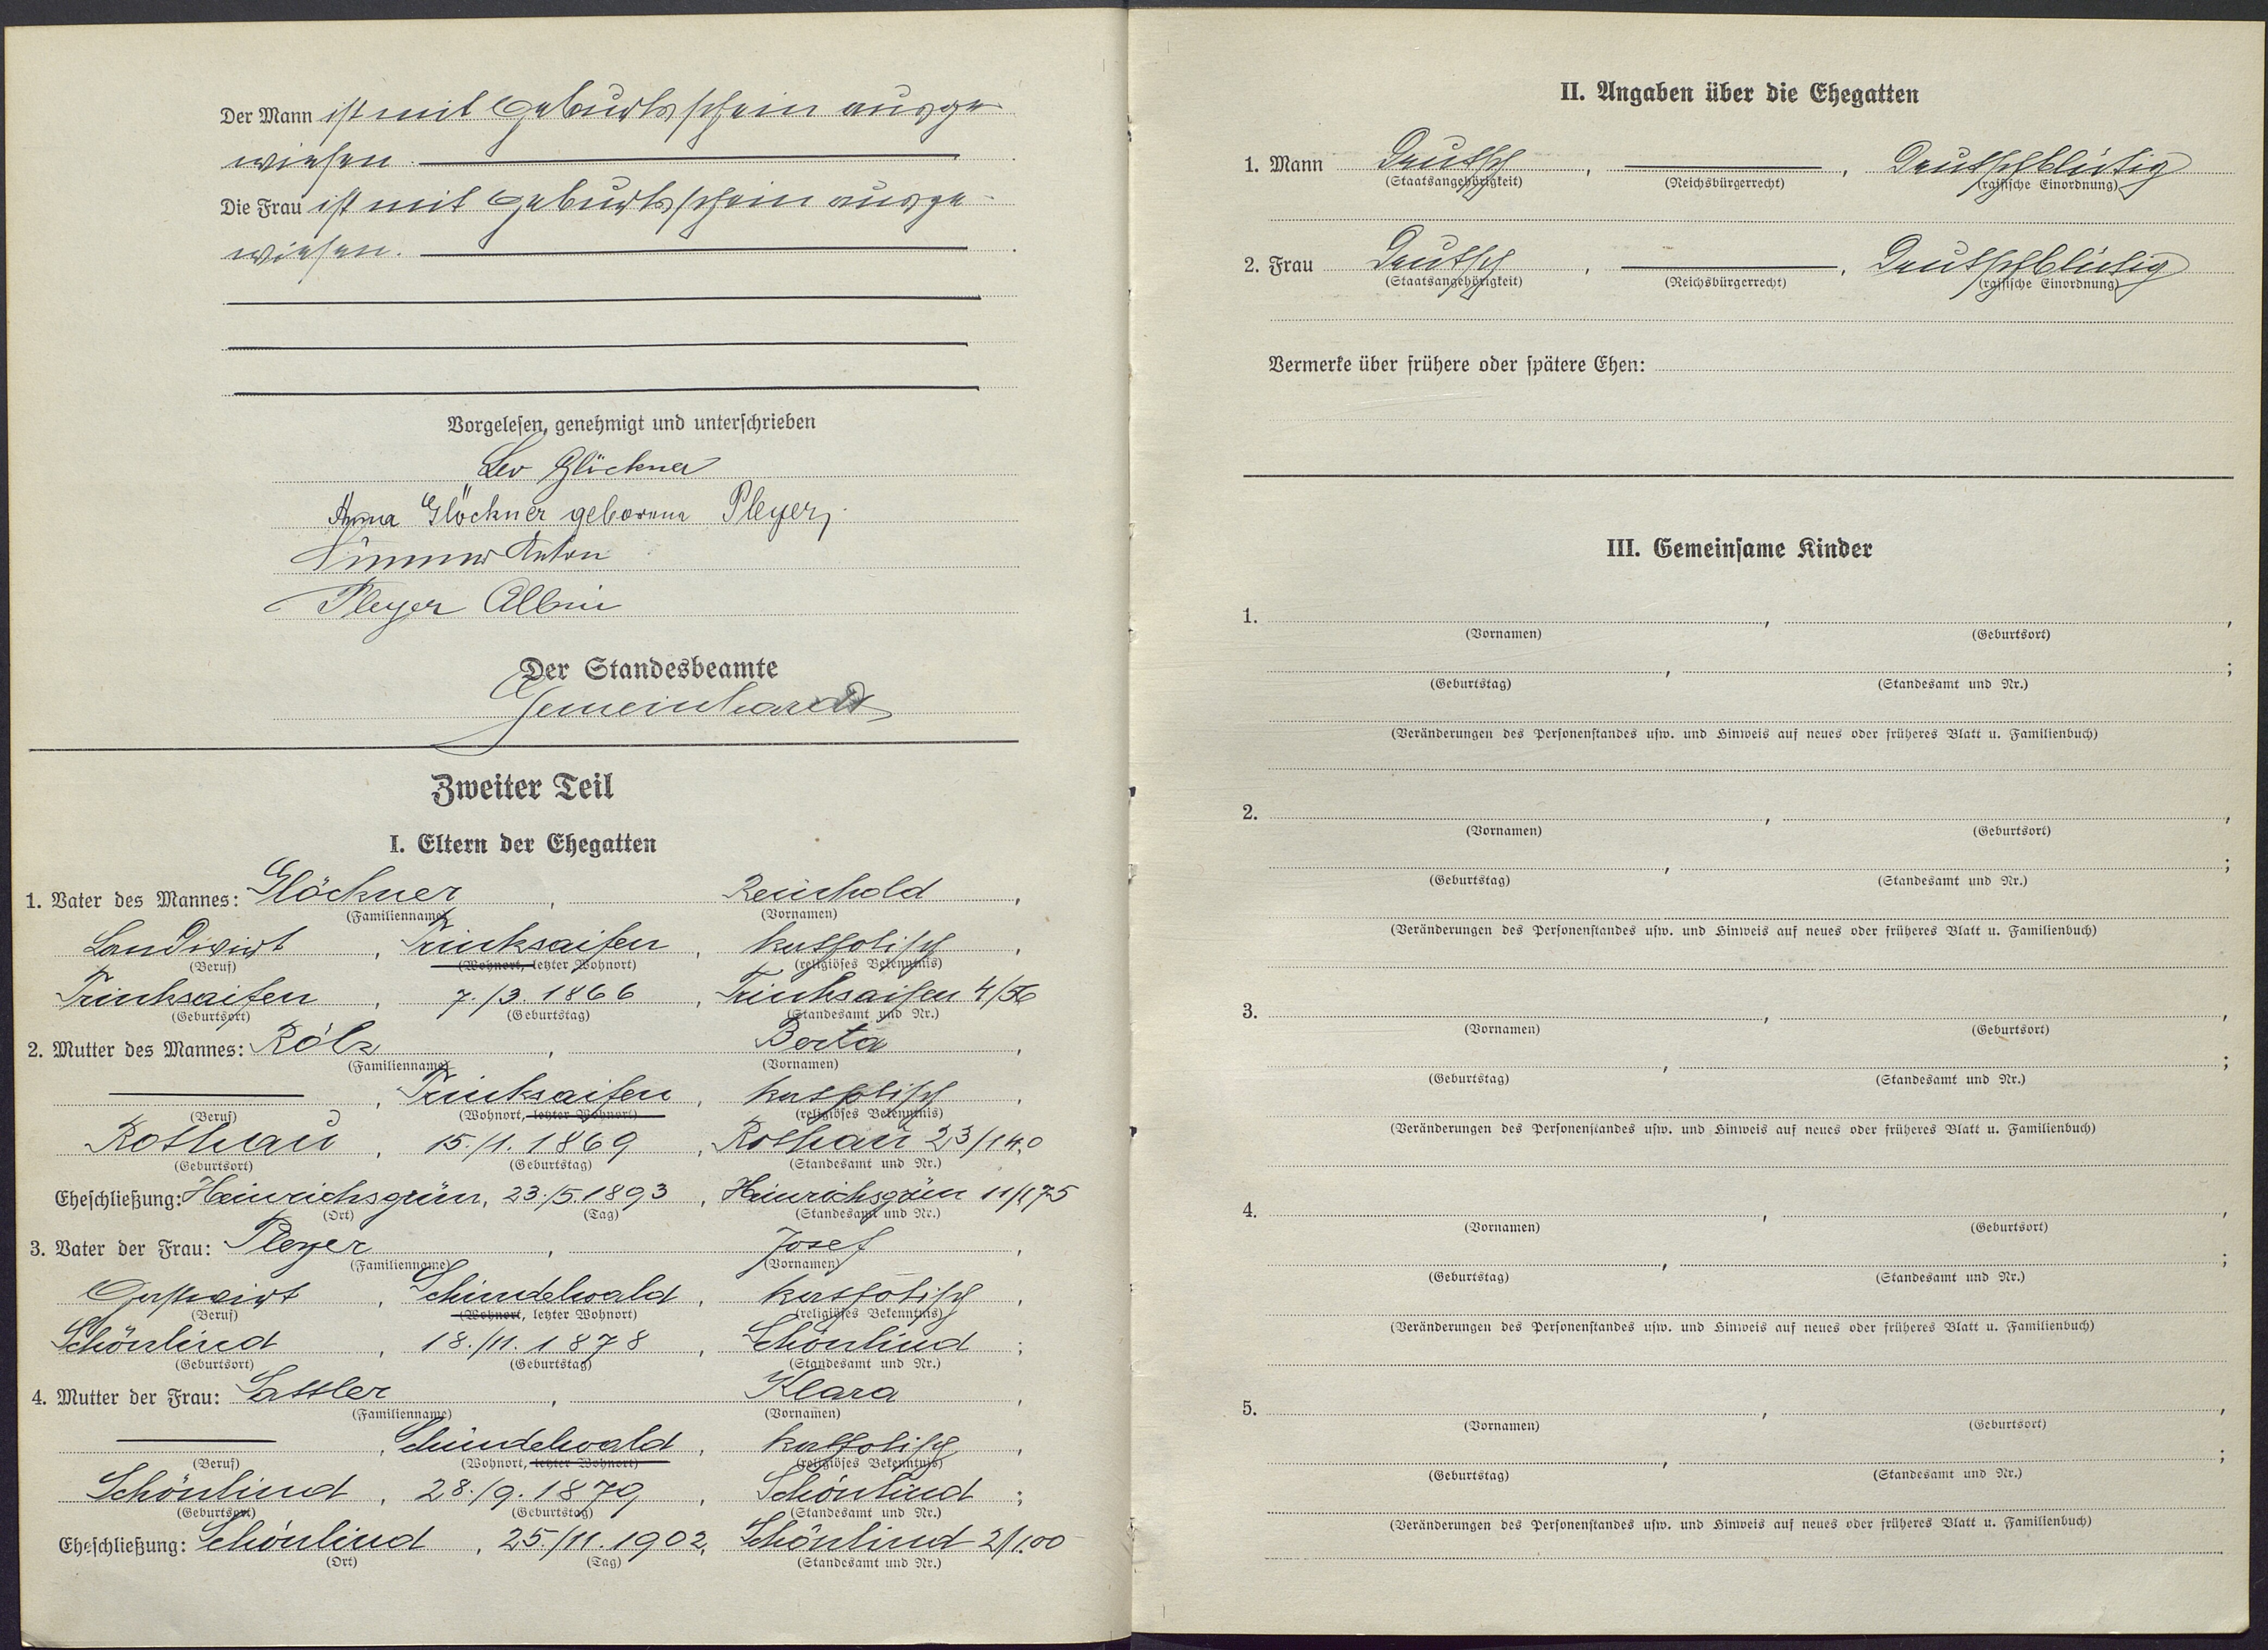 Der Mann ist mit Geburtsschein ausge-
wiesen.
Die Frau ist mit Geburtsschein ausge-
wiesen.
Vorgelesen, genehmigt und unterschrieben
Leo Glöckner
Anna Glöckner geborene Pleyer,
Anton
Pleyer Albin
Der Standesbeamte
Gemeinhardt
Zweiter Teil
I. Eltern der Ehegatten
1. Vater des Mannes: Glöckner, Reinhold,
(Familienname) (Vornamen)
Landwirt, Trinksaifen, katholisch,
(Beruf) (Wohnort, letzter Wohnort) (religiöses Bekenntnis)
Trinksaifen, 7./3. 1866, Trinksaifen 4/56
(Geburtsort) (Geburtstag) (Standesamt und Nr.)
2. Mutter des Mannes: Rölz, Berta,
(Familienname) (Vornamen)
, Trinksaifen, katholisch,
(Beruf) (Wohnort, letzter Wohnort) (religiöses Bekenntnis)
Rothau, 15./1. 1869, Rothau 23/140
(Geburtsort) (Geburtstag) (Standesamt und Nr.)
Eheschließung: Heinrichsgrün, 23./5. 1893, Heinrichsgrün 11/175
(Ort) (Tag) (Standesamt und Nr.)
3. Vater der Frau: Pleyer, Josef,
(Familienname) (Vornamen)
Gastwirt, Schindelwald, katholisch,
(Beruf) (Wohnort, letzter Wohnort) (religiöses Bekenntnis)
Schönlind, 18./11. 1878, Schönlind;
(Geburtsort) (Geburtstag) (Standesamt und Nr.)
4. Mutter der Frau: Sattler, Klara,
(Familienname) (Vornamen)
, Schindelwald, katholisch,
(Beruf) (Wohnort, letzter Wohnort) (religiöses Bekenntnis)
Schönlind, 28./9. 1879, Schönlind;
(Geburtsort) (Geburtstag) (Standesamt und Nr.)
Eheschließung: Schönlind, 25./11. 1902, Schönlind 2/100
(Ort) (Tag) (Standesamt und Nr.)
II. Angaben über die Ehegatten
1. Mann Deutsch, , Deutschblütig
(Staatsangehörigkeit) (Reichsbürgerrecht) (rassische Einordnung)
2. Frau Deutsch, , Deutschblütig
(Staatsangehörigkeit) (Reichsbürgerrecht) (rassische Einordnung)
Vermerke über frühere oder spätere Ehen:
III. Gemeinsame Kinder
1. , ,
(Vornamen) (Geburtsort)
, ;
(Geburtstag) (Standesamt und Nr.)
(Veränderungen des Personenstandes usw. und Hinweis auf neues oder früheres Blatt u. Familienbuch)
2. , ,
(Vornamen) (Geburtsort)
, ;
(Geburtstag) (Standesamt und Nr.)
(Veränderungen des Personenstandes usw. und Hinweis auf neues oder früheres Blatt u. Familienbuch)
3. , ,
(Vornamen) (Geburtsort)
, ;
(Geburtstag) (Standesamt und Nr.)
(Veränderungen des Personenstandes usw. und Hinweis auf neues oder früheres Blatt u. Familienbuch)
4. , ,
(Vornamen) (Geburtsort)
, ;
(Geburtstag) (Standesamt und Nr.)
(Veränderungen des Personenstandes usw. und Hinweis auf neues oder früheres Blatt u. Familienbuch)
5. , ,
(Vornamen) (Geburtsort)
, ;
(Geburtstag) (Standesamt und Nr.)
(Veränderungen des Personenstandes usw. und Hinweis auf neues oder früheres Blatt u. Familienbuch)